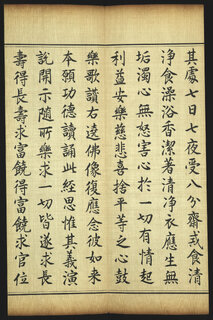 其處七日七夜受八分齋戒食清
淨食澡浴香潔著清淨衣應生無
垢濁心無怒害心於一切有情起
利益安樂慈悲喜捨平等之心鼓
樂歌讚右遶佛像復應念彼如来
本願功德讀誦此經思惟其義演
說開示随所樂求一切皆遂求長
壽得長壽求富饒得富饒求官位